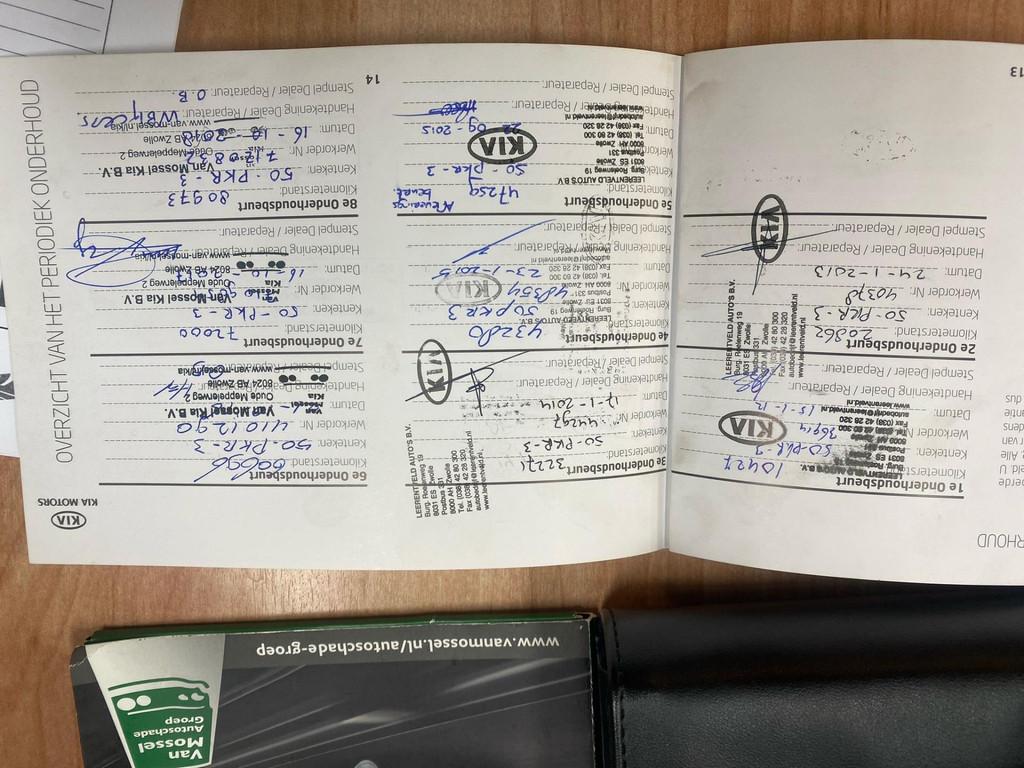 OVERZICHT VAN HET PERIODIEK ONDERHOUD
KIA MOTORS
KIA
13
1e Onderhoudsbeurt
Kilometerstand: 10427
Kenteken: 50-PKR-3
Werkorder Nr: 36914
Datum: 15-1-12
Handtekening Dealer / Reparateur:
Stempel Dealer / Reparateur:
KIA
LEERENTVELD AUTO'S B.V.
2e Onderhoudsbeurt
Kilometerstand: 20362
Kenteken: 50-PKR-3
Werkorder Nr: 40378
Datum: 24-1-2013
Handtekening Dealer / Reparateur:
Stempel Dealer / Reparateur:
KIA
LEERENTVELD AUTO'S B.V.
Burg. Roelenweg 19
8031 ES Zwolle
Postbus 331
8000 AH Zwolle
Tel. (038) 42 80 300
Fax (038) 42 28 320
autobedrijf@leerentveld.nl
www.leerentveld.nl
3e Onderhoudsbeurt
Kilometerstand: 32271
Kenteken: 50-PKR-3
Werkorder Nr: 44497
Datum: 17-1-2014
Handtekening Dealer / Reparateur:
Stempel Dealer / Reparateur:
KIA
LEERENTVELD AUTO'S B.V.
Burg. Roelenweg 19
8031 ES Zwolle
Postbus 331
8000 AH Zwolle
Tel. (038) 42 80 300
Fax (038) 42 28 320
autobedrijf@leerentveld.nl
www.leerentveld.nl
4e Onderhoudsbeurt
Kilometerstand: 43280
Kenteken: 50 PKR 3
Werkorder Nr: 48554
Datum: 23-1-2015
Handtekening Dealer / Reparateur:
Stempel Dealer / Reparateur:
KIA
5e Onderhoudsbeurt
Kilometerstand: 47259
Kenteken: 50-PKR-3
Werkorder Nr:
Datum: 22-09-2015
Handtekening Dealer / Reparateur:
Stempel Dealer / Reparateur:
KIA
LEERENTVELD AUTO'S B.V.
Burg. Roelenweg 19
8031 ES Zwolle
Postbus 331
8000 AH Zwolle
Tel. (038) 42 80 300
Fax (038) 42 28 320
autobedrijf@leerentveld.nl
www.leerentveld.nl
14
6e Onderhoudsbeurt
Kilometerstand: 60656
Kenteken: 50-PKR-3
Werkorder Nr: 4101290
Datum:
Handtekening Dealer / Reparateur:
Stempel Dealer / Reparateur:
Van Mossel Kia B.V.
Oude Meppelerweg 2
8024 AB Zwolle
www.van-mossel.nl/kia
7e Onderhoudsbeurt
Kilometerstand: 72000
Kenteken: 50-PKR-3
Werkorder Nr:
Datum:
Handtekening Dealer / Reparateur:
Stempel Dealer / Reparateur:
Van Mossel Kia B.V.
Oude Meppelerweg 2
8024 AB Zwolle
www.van-mossel.nl/kia
8e Onderhoudsbeurt
Kilometerstand: 80973
Kenteken: 50-PKR-3
Werkorder Nr: 7120832
Datum: 16-12-2018
Handtekening Dealer / Reparateur:
Stempel Dealer / Reparateur: O.B.
Van Mossel Kia B.V.
Oude Meppelerweg 2
8024 AB Zwolle
www.van-mossel.nl/kia
www.vanmossel.nl/autoschade-groep
Van
Mossel
Autoschade
Groep